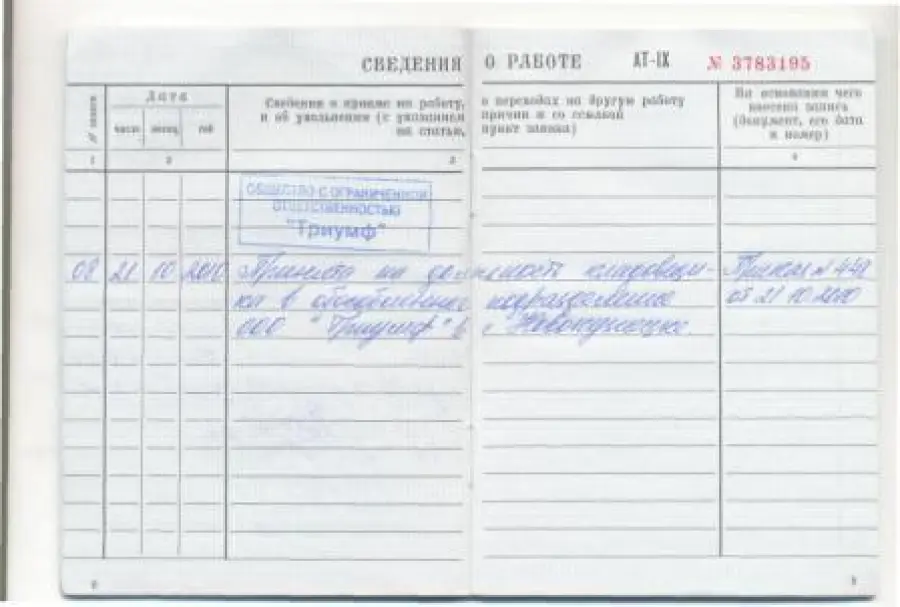 СВЕДЕНИЯ О РАБОТЕ АТ-IX № 3783195
Дата
№ записи
число месяц год
Сведения о приеме на работу, о переходах на другую работу
и об увольнении (с указанием причин и со ссылкой
на статью, пункт закона)
На основании чего
внесена запись
(документ, его дата
и номер)
1 2 3 4
ОБЩЕСТВО С ОГРАНИЧЕННОЙ
ОТВЕТСТВЕННОСТЬЮ
"Триумф"
08 21 10 2010 Принята на должность кладовщи- Приказ №
ка в обособленное подразделение 21.10.2010
ООО "Триумф" в г Новокузнецке